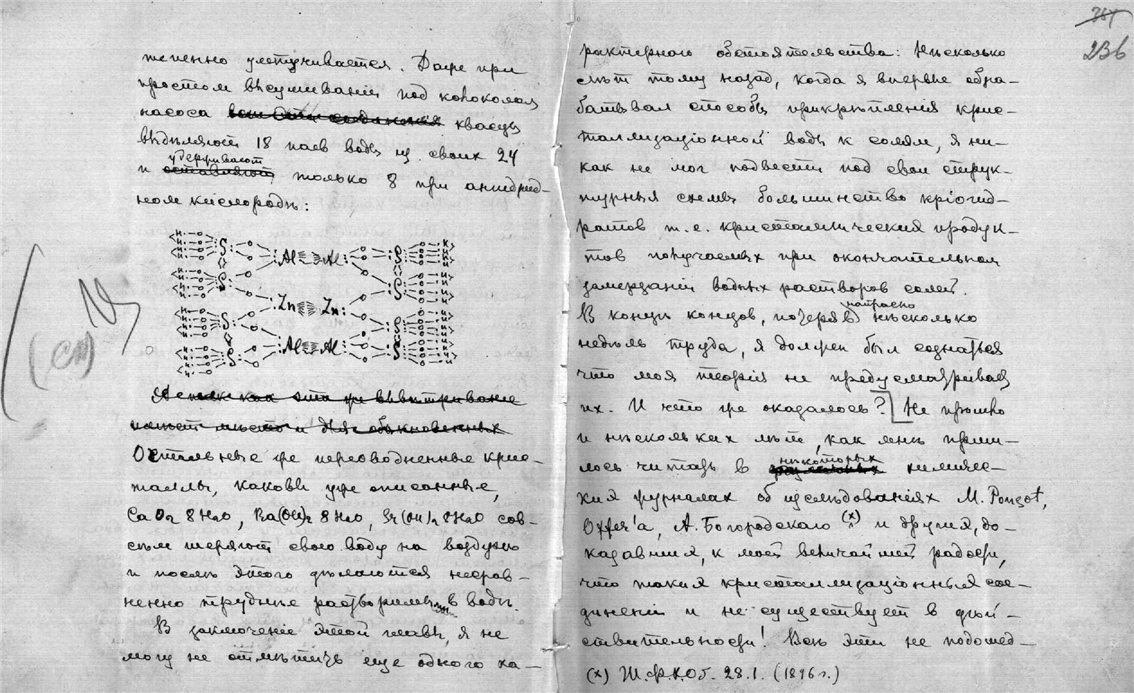 тепенно улетучивается. Даже при
простом высушиваніи под колоколом
насоса квасцы
выделяют 18 паев воды из своих 24
удерживают
и оставляют только 8 при ангидрид-
ном кислороде:
Al Al
Zn Zn
Al Al
(см)
А так как эти же вывѣтриванія
имѣют мѣсто и для обыкновенных
Остальные же переводненные крис-
таллы, каковы уже описанные,
CaO2 8H2O, Ba(OH)2 8H2O, Sr(OH)2 8H2O сов-
сѣм теряют свою воду на воздухѣ
и послѣ этого дѣлаются несрав-
ненно труднѣе растворимы в водѣ.
В заключеніе этой главы, я не
могу не отмѣтить еще одного ха-
351
236
рактерного обстоятельства: Нѣсколько
лѣт тому назад, когда я впервые обра-
батывал способы прикрѣпленія крис-
таллизаціонной воды к солям, я ни-
как не мог подвести под свои струк-
турныя схемы большинство кріогид-
ратов т. е. кристаллическия продук-
тов получаемых при окончательном
замерзаніи водных растворов солей.
напрасно
В концѣ концов, потеряв нѣсколько
недѣль труда, я должен был сознаться
что моя теорія не предусматривает
их. И что же оказалось? Не прошло
и нѣскольких лѣт, как мнѣ приш-
некоторых
лось читать в химичес-
ких журналах об изслѣдованіях M. Ponsot,
Offer'а, А. Богородскаго (x) и другия, до-
казавшия, к моей величайшей радости,
что такия кристаллизаціонныя сое-
диненія и не существует в дѣй-
ствительности! Всѣ эти не подошед-
(x) Ж.Ф.Х.О. 28.1. (1896 г.)